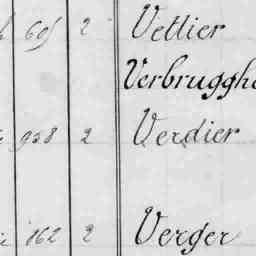 605 2 Vettier
Verbruggh
958 2 Verdier
162 2 Verger